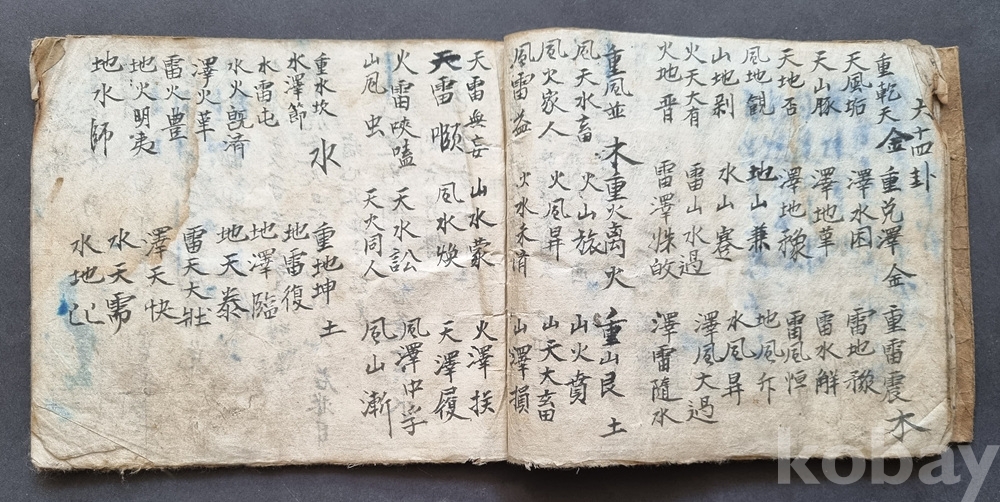 六十四卦
重乾天 金 重兌澤 金 重雷震 木
天風垢 澤水困 雷地豫
天山豚 澤地草 雷水解
天地否 澤地豫 雷風恒
風地観 地山兼 地風升
山地剥 水山蹇 水風昇
火天大有 雷山水過 澤風大過
火地晋 雷澤 澤雷隨水
重風並 木 重火离火 重山艮 土
風天水畜 火山旅 山火賁
風火家人 火風昇 山天大畜
風雷益 火水未済 山澤損
天雷無妄 山水蒙 火澤揆
天雷頤 風水煥 天澤履
火雷嗑 天水訟 風澤中孚
山風虫 天火同人 風山漸
重水坎 水 重地坤 土
水澤節 地雷復
水雷屯 地澤臨
水火既濟 地天泰
澤火革 雷天大壯
雷火豊 澤天快
地火明夷 水天需
地水師 水地比
kobay